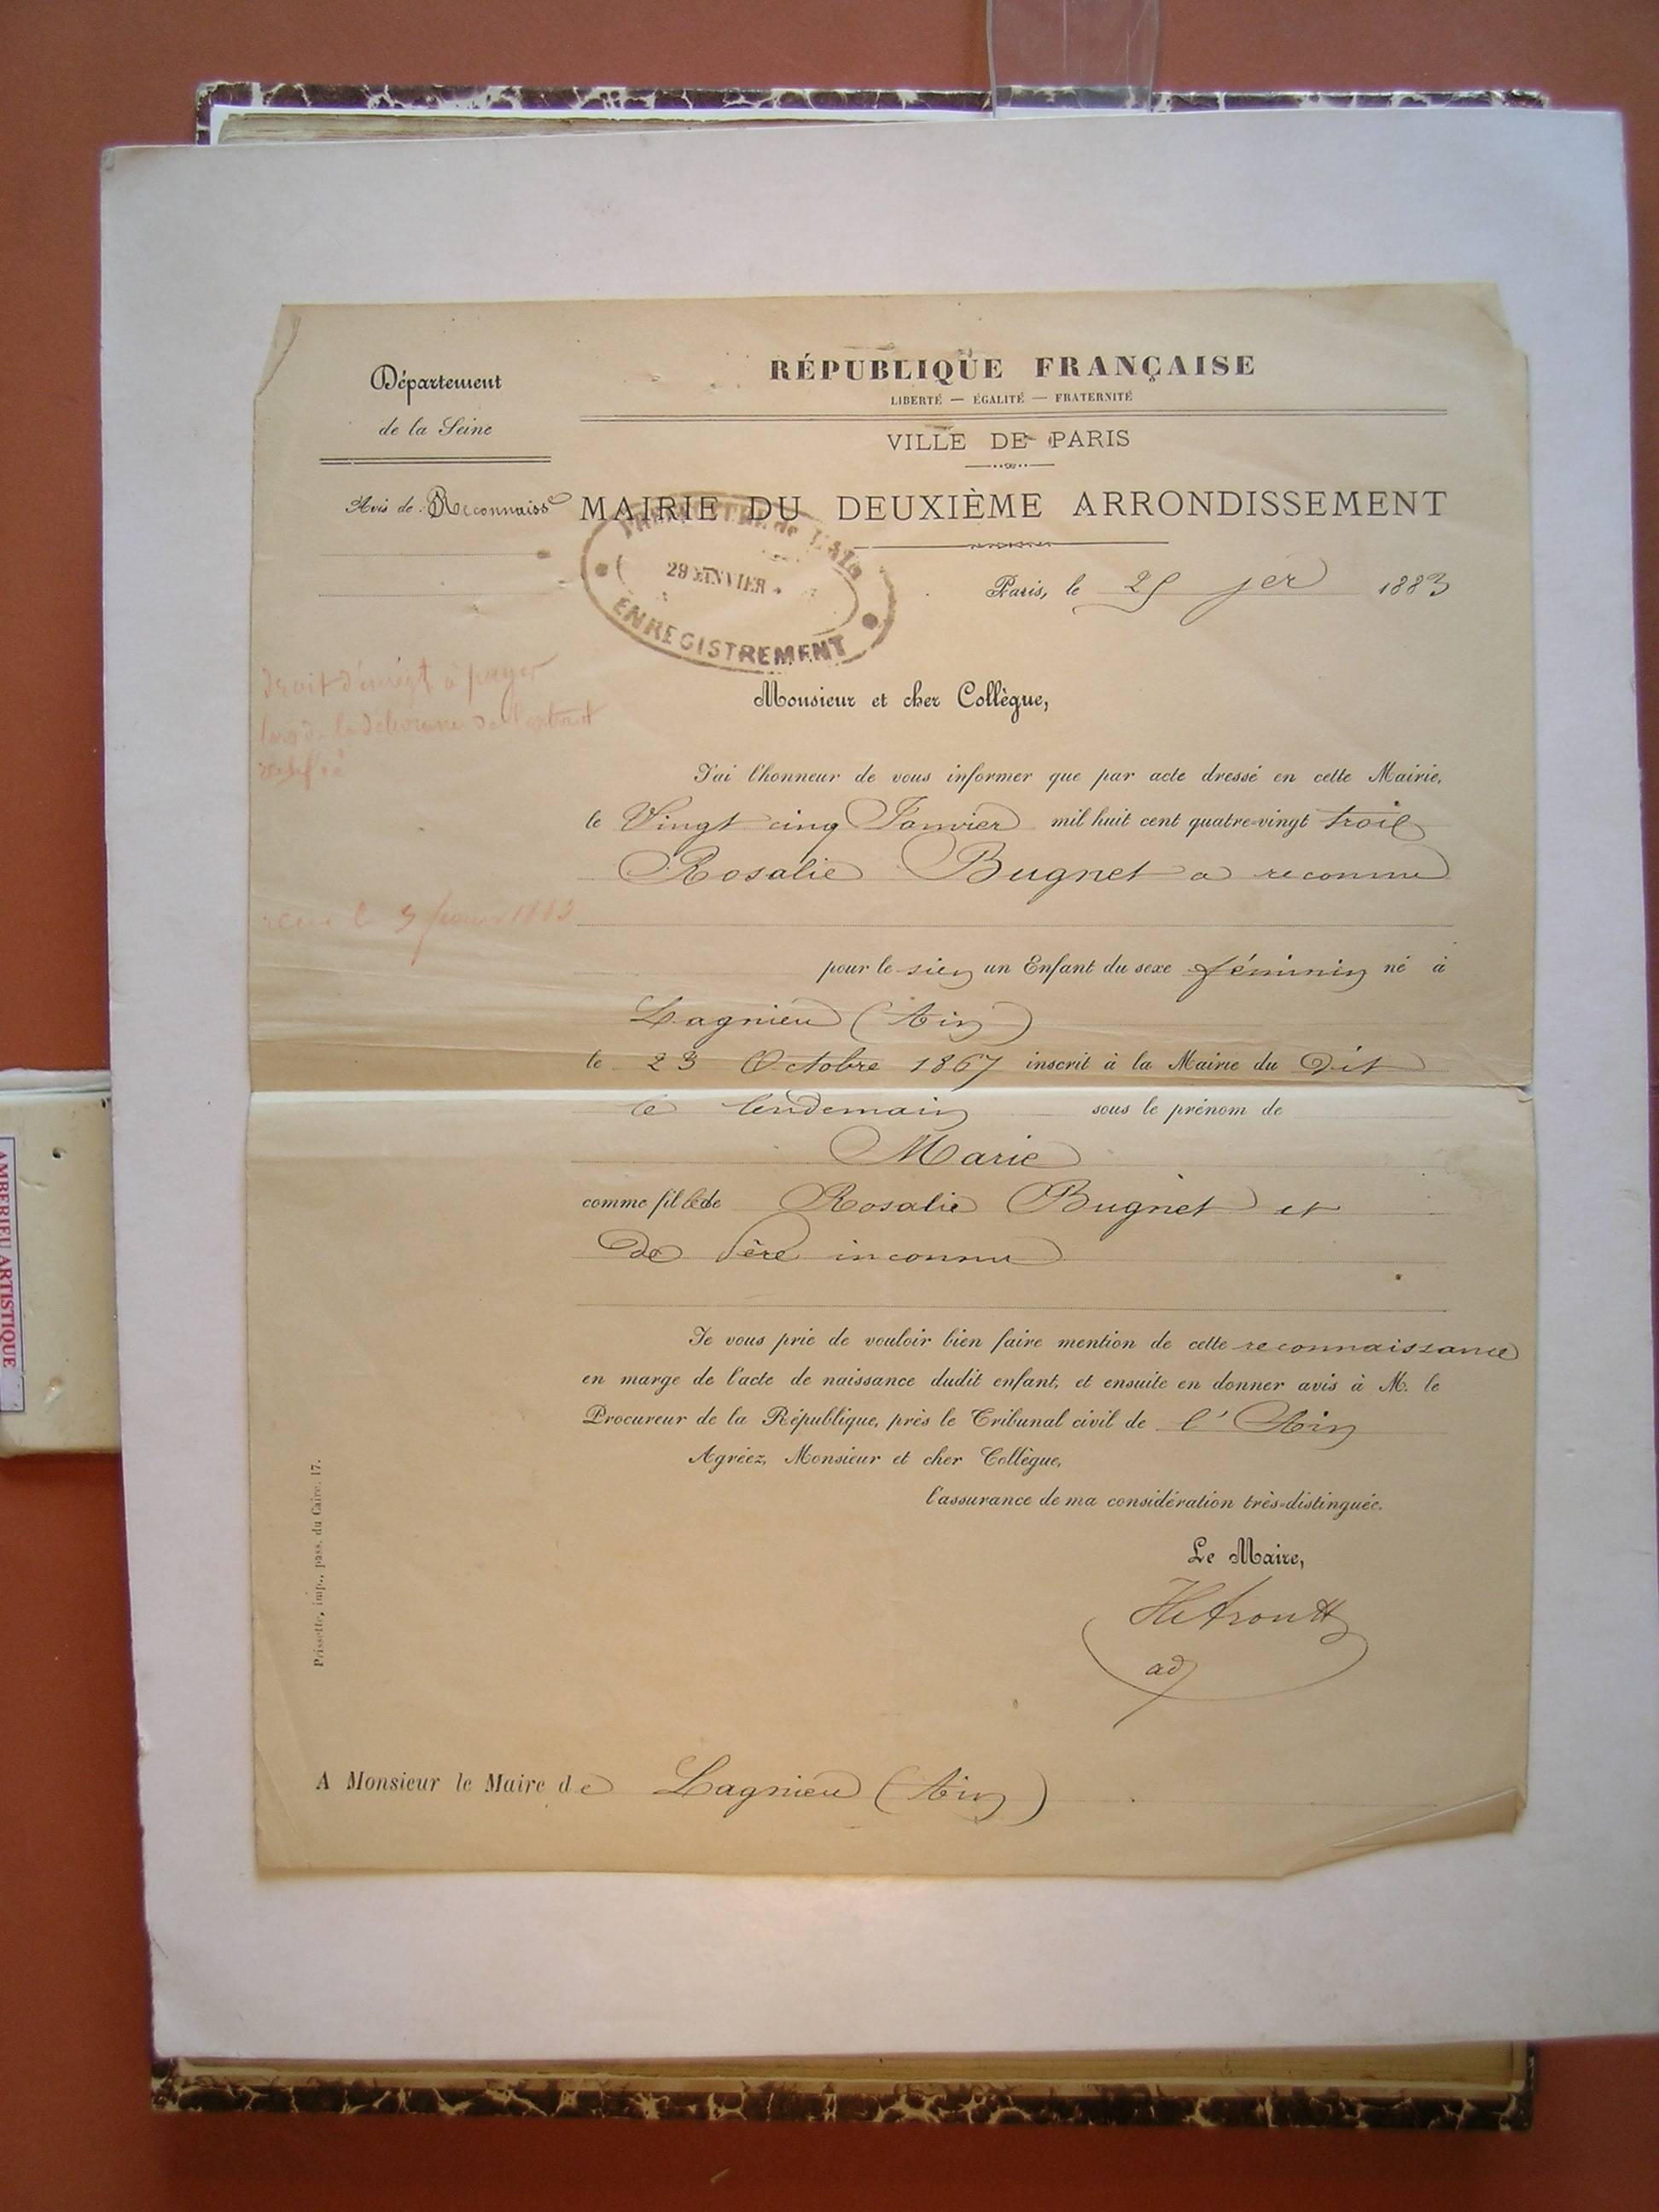 Département
de la Seine
RÉPUBLIQUE FRANÇAISE
LIBERTÉ — ÉGALITÉ — FRATERNITÉ
VILLE DE PARIS
Avis de Reconnaiss^ce
MAIRIE DU DEUXIÈME ARRONDISSEMENT
29 JANVIER
ENREGISTREMENT
Paris, le 25 jer 1883
droit d'enregt à payer
lors de la délivrance de l'extrait
Monsieur et cher Collègue,
J'ai l'honneur de vous informer que par acte dressé en cette Mairie,
le Vingt cinq Janvier mil huit cent quatre-vingt trois
Rosalie Bugnet a reconnu
pour le sien un Enfant du sexe féminin né à
Lagnieu (Ain)
le 23 Octobre 1867 inscrit à la Mairie du Dit
le lendemain sous le prénom de
Marie
comme fille de Rosalie Bugnet et
de Père inconnu
Je vous prie de vouloir bien faire mention de cette reconnaissance
en marge de l'acte de naissance dudit enfant, et ensuite en donner avis à M. le
Procureur de la République, près le Tribunal civil de l'Ain
Agréez, Monsieur et cher Collègue,
l'assurance de ma considération très-distinguée.
Le Maire,
adj
A Monsieur le Maire de Lagnieu (Ain)
Prissette, imp., pass. du Caire, 17.
AMBERIEU ARTISTIQUE